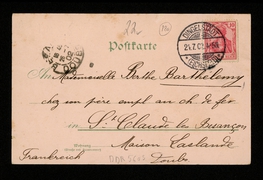 22
Postkarte
DINGELSTÄDT
21.7.02
(EICHSFELD)
DOUBS
An Mademoiselle Berthe Barthelemy
chez son père empl. au ch. de fer
in St Claude les Besançon
Maison Caslande
Wohnung
Frankreich Doubs